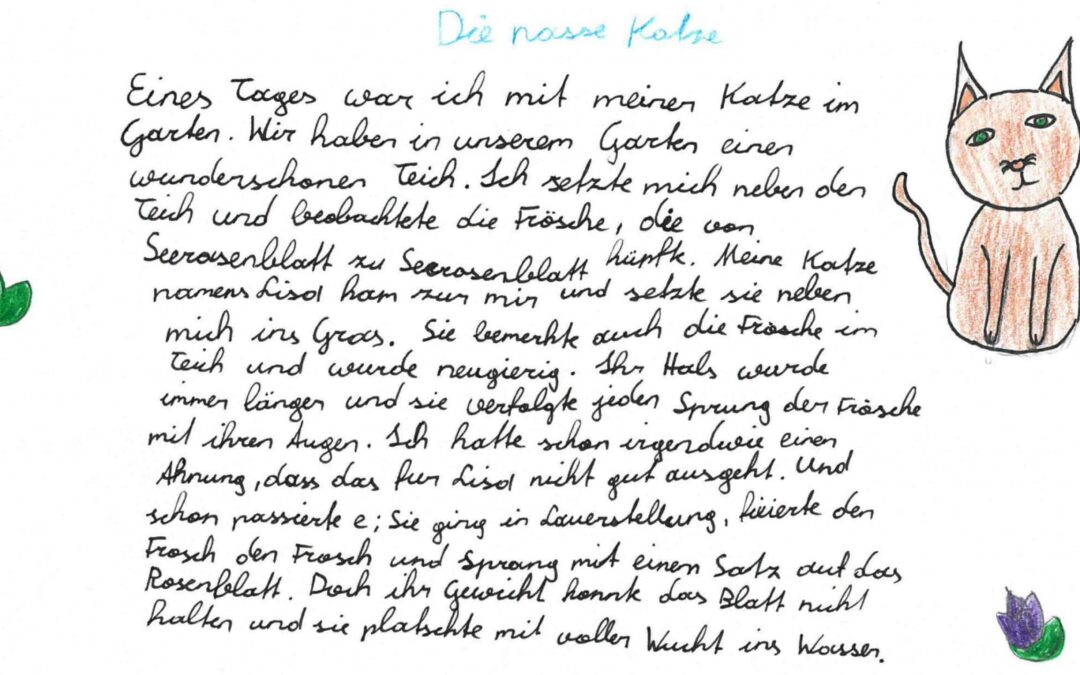 Die nasse Katze
Eines Tages war ich mit meiner Katze im
Garten. Wir haben in unserem Garten einen
wunderschonen Teich. Ich setzte mich neben den
Teich und beobachtete die Frösche, die von
Seerosenblatt zu Seerosenblatt hüpfte. Meine Katze
namens Lisa kam zur mir und setzte sie neben
mich ins Gras. Sie bemerkte auch die Frösche im
Teich und wurde neugierig. Ihr Hals wurde
immer länger und sie verfolgte jeden Sprung der Frösche
mit ihren Augen. Ich hatte schon irgendwie einen
Ahnung, dass das fur Lisa nicht gut ausgeht. Und
schon passierte e; Sie ging in Lauerstellung, fixierte den
Frosch den Frosch und Sprang mit einem Satz auf das
Rosenblatt. Doch ihr Gewicht konnte das Blatt nicht
halten und sie platschte mit voller Wucht ins Wasser.